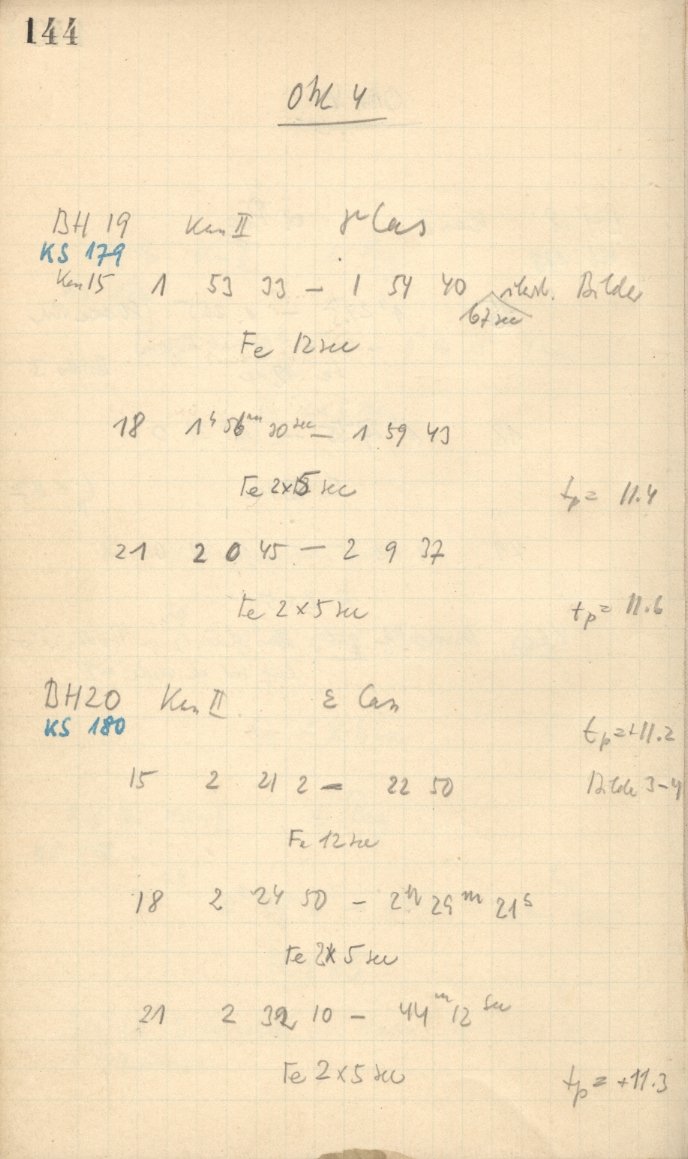 144
Okt 4
BH 19 Kas II γ Cas
KS 179
Kas 15 1 53 33 – 1 54 40 Bilder
67 sec
Fe 12 sec
18 1h 56m 30sec – 1 59 43
Fe 2×5 sec tp= 11.4
21 2 0 45 – 2 9 37
Fe 2×5 sec tp= 11.6
BH20 Kas II ε Cas
KS 180 tp=+11.2
15 2 21 2 – 22 50 Bilder 3–4
Fe 12 sec
18 2 24 50 – 2h 29m 21s
Fe 2×5 sec
21 2 32 10 – 44m 12 sec
Fe 2×5 sec tp = +11.3